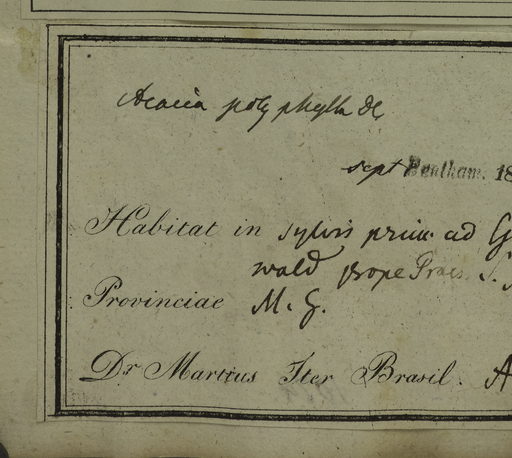 Acacia polyphylla DC
sept Bentham. 18
Habitat in sylvis prim. ad G
wald prope Praes. S.
Provinciae M. G.
Dr. Martius Iter Brasil. A